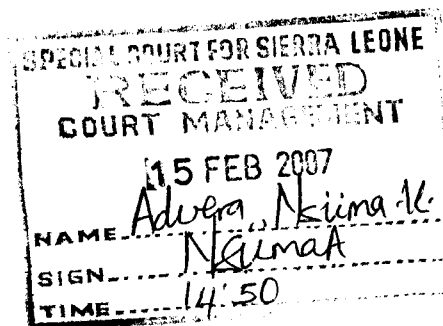 SPECIAL COURT FOR SIERRA LEONE
RECEIVED
COURT MANAGEMENT
15 FEB 2007
NAME Advera Nsiima K.
SIGN NsiimaA
TIME 14:50